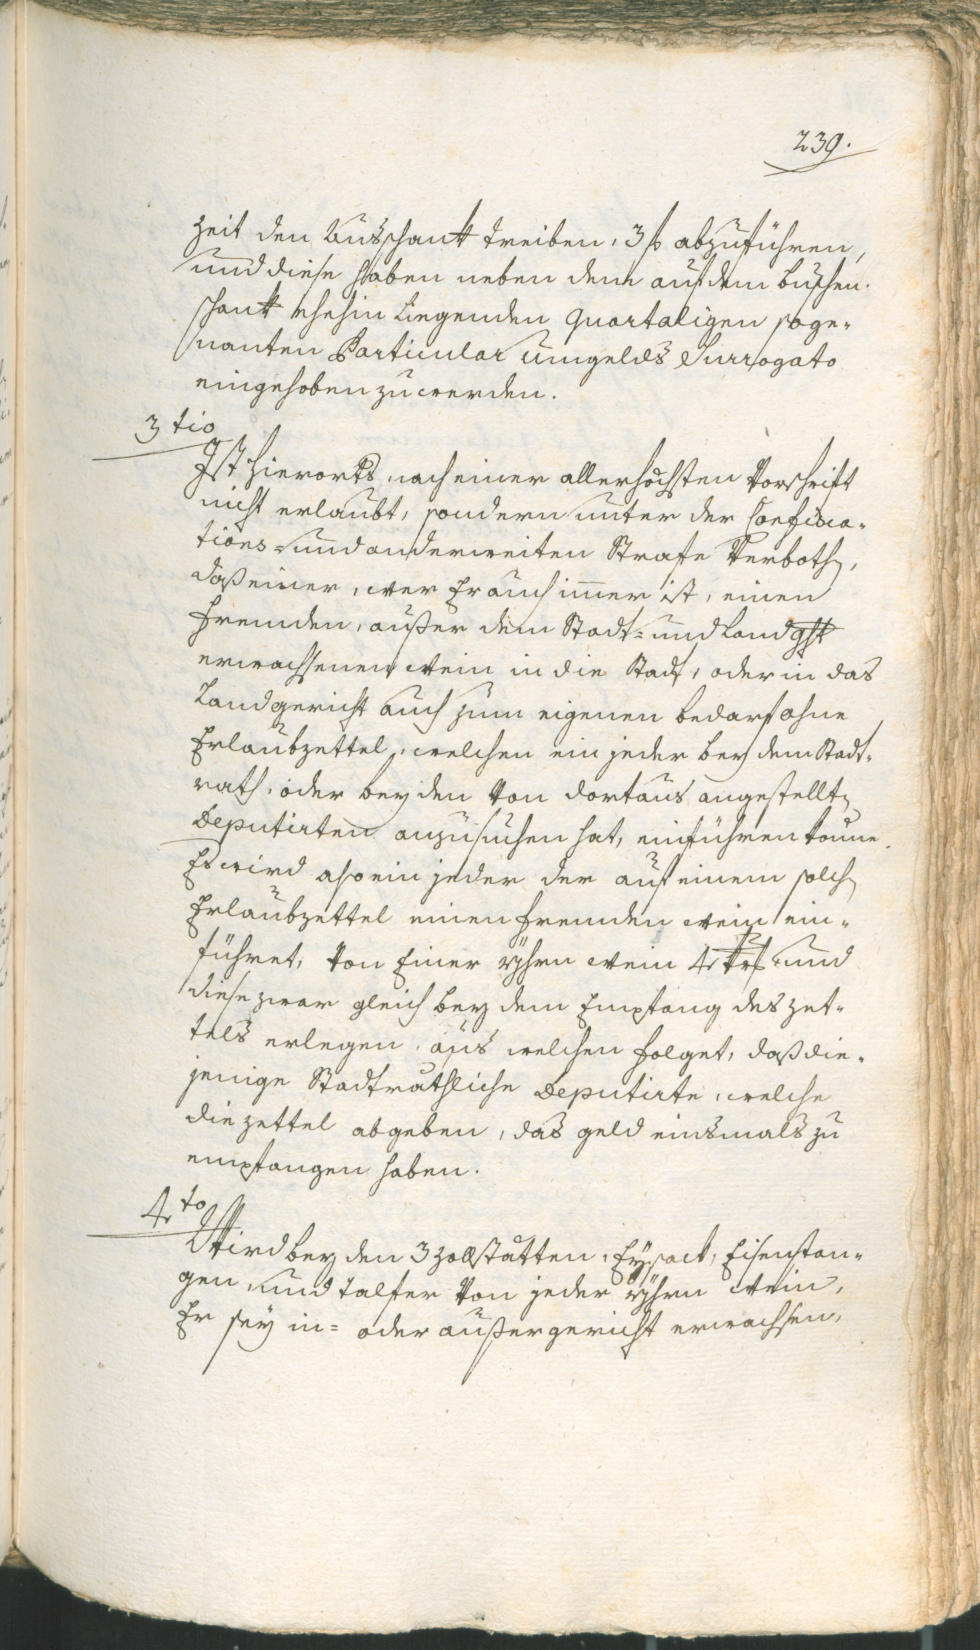 239.
Zeit den Busschank treiben, 3 f abzuführen,
und diese haben neben dem auf dem Buschen-
schank ehehin liegenden quartaligen soge-
nanten Particular Umgelds Surrogato
eingehoben zu werden.
3tio
Ist hierorts nach einer allerhöchsten Vorschrift
nicht erlaubt, sondern unter der Confisca-
tions- und anderweiten Strafe verbothen,
daß einer, wer Er auch immer ist, einen
fremden, außer dem Stadt- und Landght
erwachsenen Wein in die Stadt, oder in das
Landgericht auch zum eigenen bedarf ohne
Erlaubzettel, welchen ein jeder bey dem Stadt-
rath, oder bey den von dortaus angestellten
Deputirten anzusuchen hat, einführen könne.
Es wird also ein jeder der auf einem solchen
Erlaubzettel einen fremden Wein ein-
führet, von Einer Yhrn Wein 4 und
diese zwar gleich bey dem Empfang des Zet-
tels erlegen, aus welchen folget, daß die-
jenige Stadträthliche Deputirte, welche
die Zettel abgeben, das geld einsmals zu
empfangen haben.
4to
Wird bey den 3 Zollstätten, Eysack, Eisenstan-
gen, und Talfer von jeder Yhrn Wein,
Er sey in- oder außer gericht erwachsen,